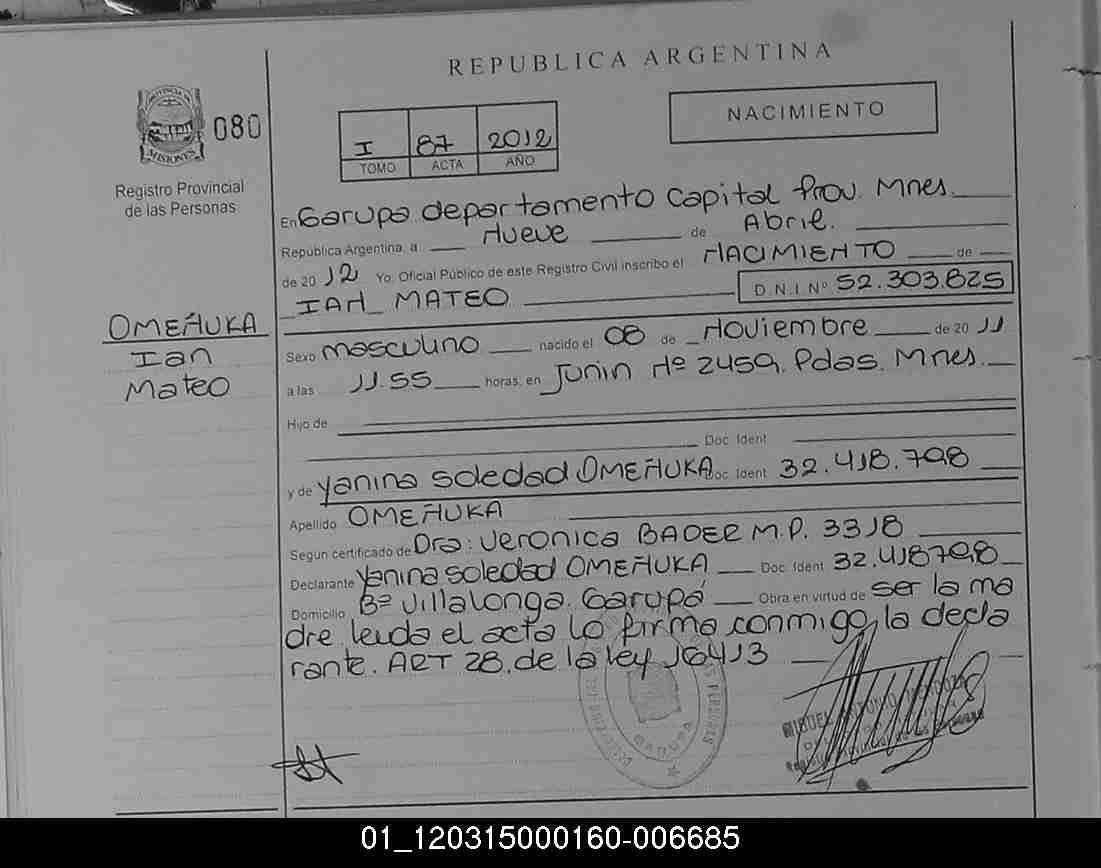 REPUBLICA ARGENTINA
PROVINCIA DE
MISIONES
080
Registro Provincial
de las Personas
I 87 2012
TOMO ACTA AÑO
NACIMIENTO
En Garupa departamento Capital Prov. Mnes.
República Argentina, a Nueve de Abril.
de 2012 Yo, Oficial Público de este Registro Civil inscribo el NACIMIENTO de
IAN MATEO D.N.I. Nº 52.303.825
OMEÑUKA
Ian
Mateo
Sexo masculino nacido el 08 de Noviembre de 2011
a las 11.55 horas, en Junin Nº 2459, Pdas. Mnes.
Hijo de
Doc. Ident
y de Yanina Soledad OMEÑUKA Doc. Ident 32.418.798
Apellido OMEÑUKA
Segun certificado de Dra: Veronica BADER M.P. 3318
Declarante Yanina Soledad OMEÑUKA Doc. Ident 32.418798
Domicilio Bº Villalonga. Garupá Obra en virtud de ser la ma
dre leida el acta lo firma conmigo, la decla
rante. ART 28. de la ley 16413
GARUPA
01_120315000160-006685